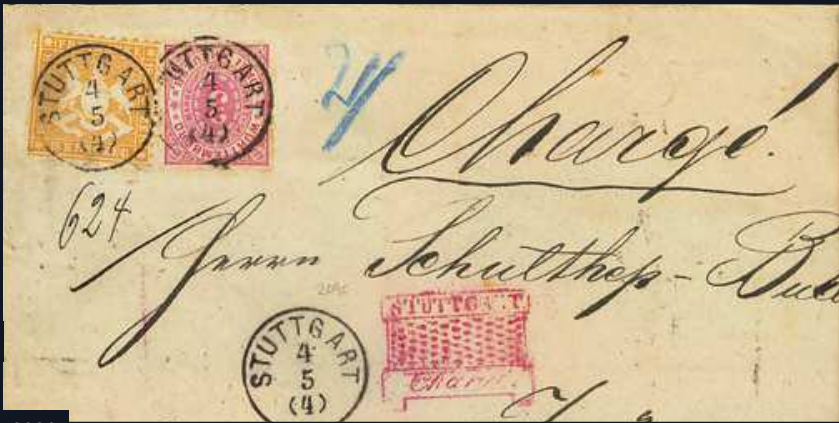 STUTTGART
4
5
(4)
STUTTGART
4
5
(4)
Chargé.
624
Herrn Schulthess-
STUTTGART
4
5
(4)
STUTTGART
Chargé.